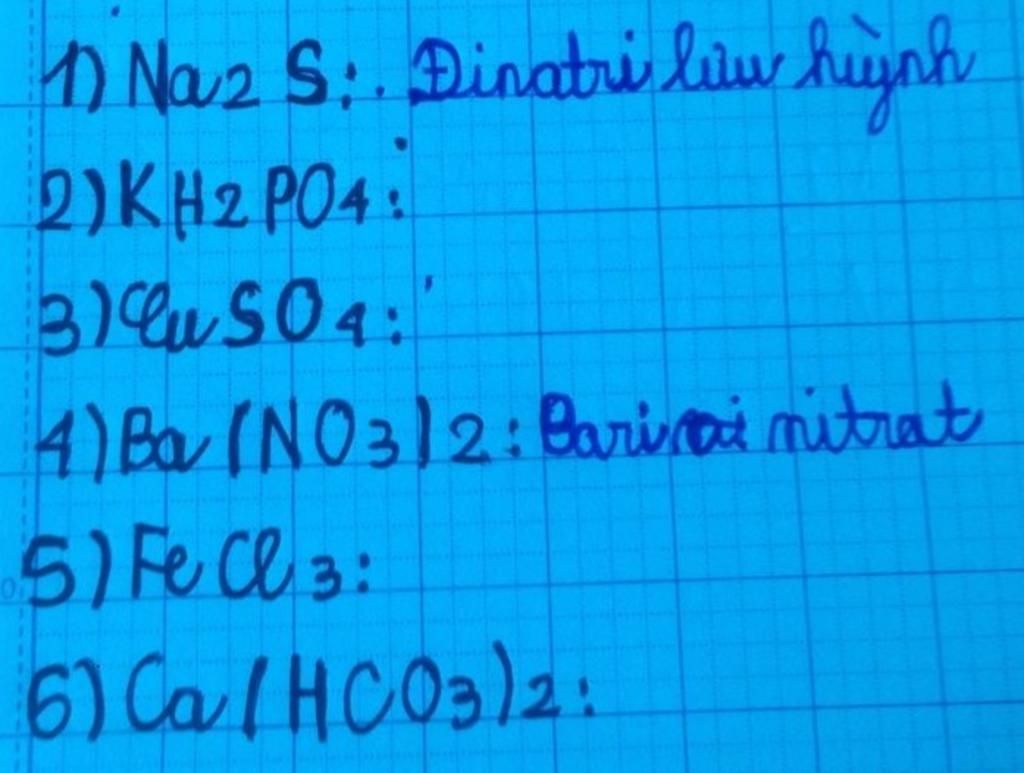 1) Na2 S: Đinatri lưu huỳnh
2) KH2PO4:
3) CuSO4:
4) Ba(NO3)2: Bari nitrat
5) FeCl3:
6) Ca(HCO3)2: